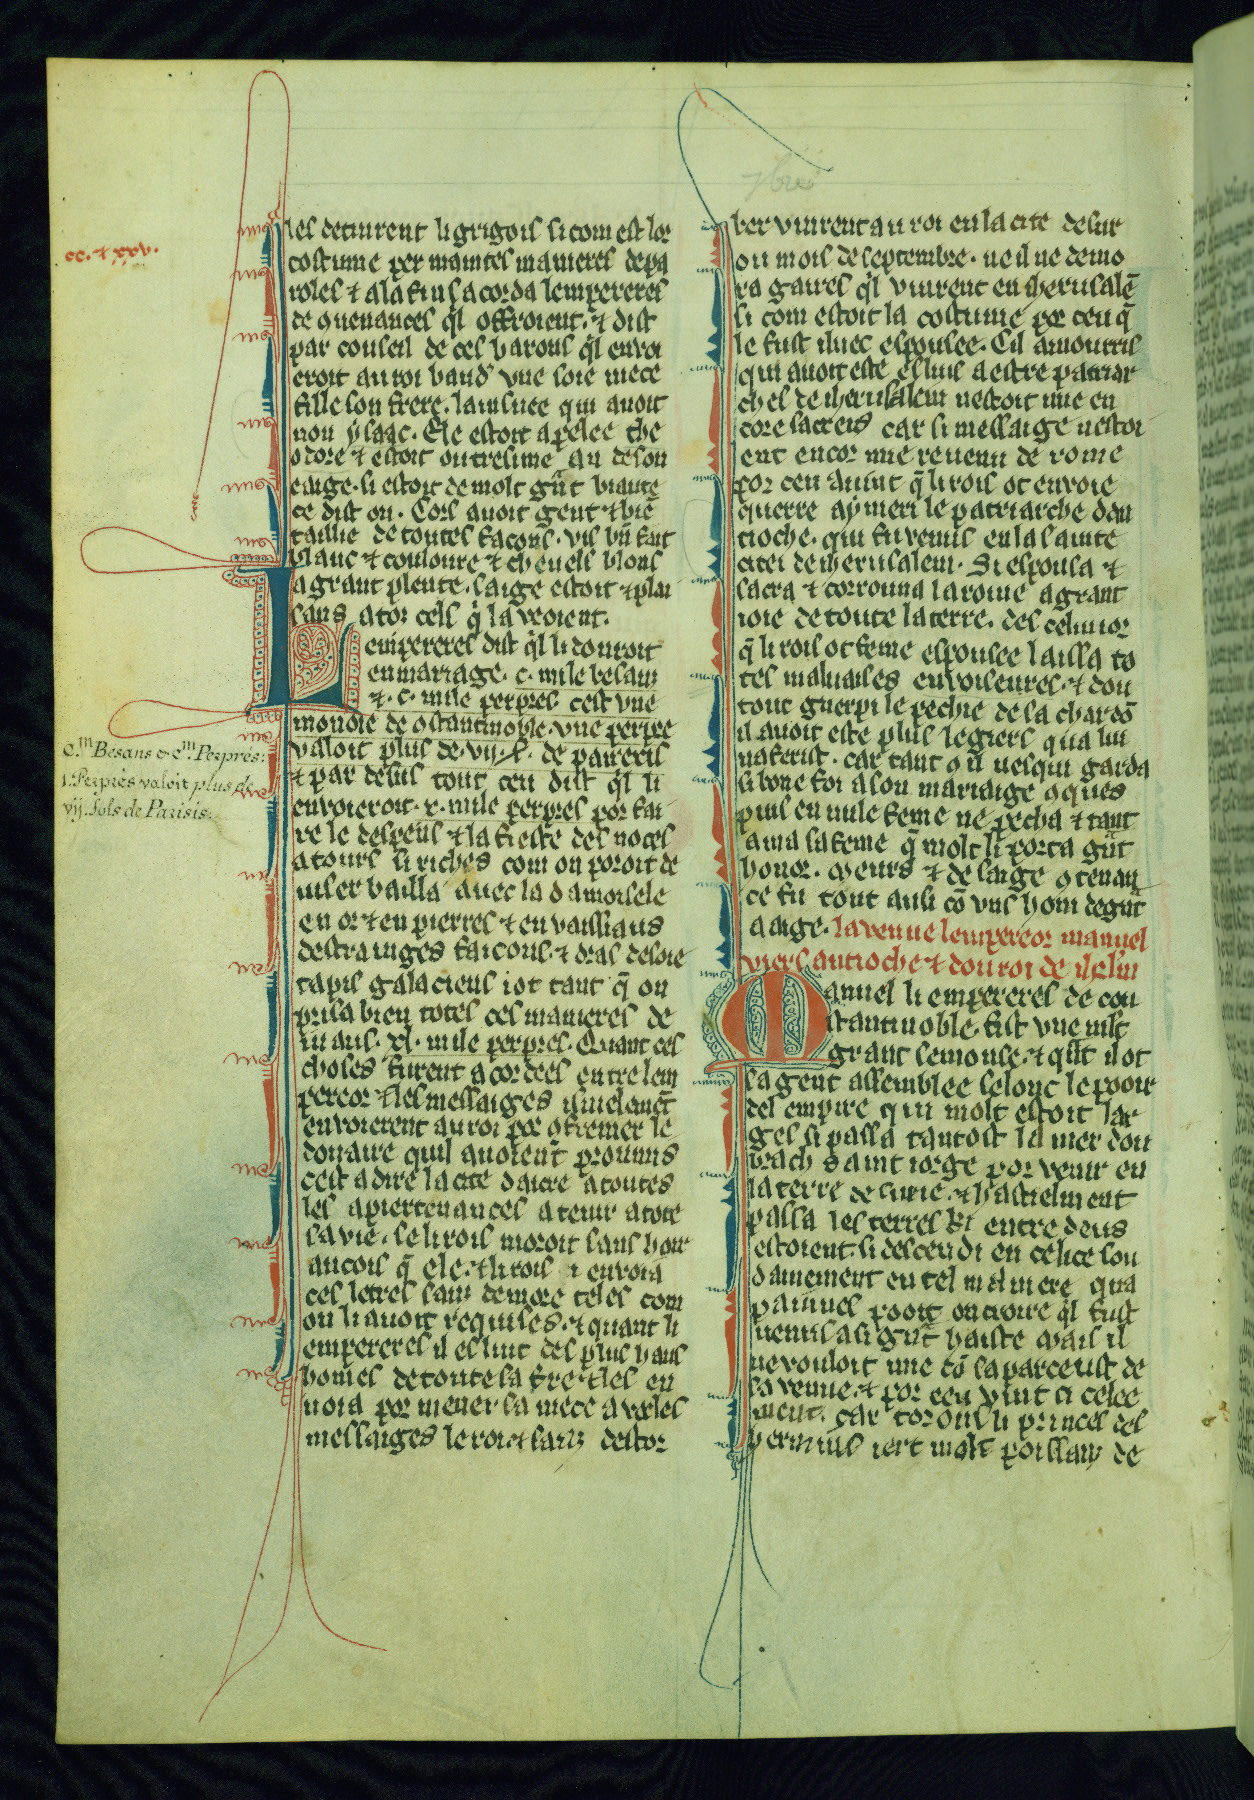 cc. & xxv.
les detinrent li grigois si com est lor
costume per maintes manieres de pa
roles & a la fin sacorda lempereres
de ɔuenances q̃l offroient. & dist
par conseil de ces barons q̃l envoi
eroit au roi baud' vne soie niece
fille son frere. lainsnee qui auoit
non ysaac. Ele estoit apelee the
odore & estoit outresime an de son
eaige. si estoit de molt gr̃t biaute
ce dist on. Cors auoit gent & biẽ
taillie de toutes facons. vis bñ fait
blanc & couloure & cheuels blons
a grant plente. saige estoit & plai
sans a toz cels q̃ la veoient.
Lempereres dist q̃l li donroit
en mariage. c. mile besanz
&. c. mile perpres cest vne
monoie de ɔstantinoble. vne perpre
valoit plus de. vij. s. de paresis
& par desus tout ceu dist q̃l li
envoieroit. x. mile perpres por fai
re le despens & la feste des noces
atours si riches com on poroit de
uiser bailla auec la damoisele
en or & en pierres & en vaissiaus
destrainges faicons. & dras de soie
tapis galaciens i ot tant q̃ on
prisa bien totes ces manieres de
dras. xl. mile perpres. Quant ces
choses furent acordees entre lem
pereor & les messaiges
envoierent au roi por ɔfremer le
donaire quil auoient promis
cest a dire la cite dacre a toutes
les apiertenances a tenir a tote
sa vie. se li rois moroit sans hoir
ancois q̃ ele. & li rois i envoia
ces letres sanz demore teles com
on li auoit requises. & quant li
empereres il eslint des plus haus
homes de toute sa tre & les en
uoia por mener sa niece avec les
messaiges le roi. & sanz destor
C.ᵐ Besans & C.ᵐ Perprés:
1. Perprés valoit plus de
vij. sols de Parisis.
ber vinrent au roi en la cite de sur
ou mois de septembre. ne il ne demo
ra gaires q̃l vinrent en iherusalẽ
si com estoit la costume por ceu q̃
le fust iluec espousee. Cil amourris
qui auoit este esluis a estre patriar
ches de iherusalem nestoit mie en
core sacreis car si messaige nestoi
ent encor mie revenu de rome
por ceu auint q̃ li rois ot envoie
querre aymeri le patriarche dan
tioche. qui fu venus en la sainte
citei de iherusalem. Si espousa &
sacra & corrouna la roine a grant
ioie de toute la terre. des celui ior
q̃ li rois ot feme espousee laissa to
tes maluaises envoiseures. & dou
tout guerpi le pechie de sa char dõ
il auoit este plus legiers qua lui
naferist. car tant ɔ il uesqui garda
si bone foi a son mariaige ɔques
puis en nule feme ne pecha & tant
ama sa feme q̃ molt li porta gr̃t
honor. meurs & de saige ɔtenan
ce fu tout ausi cõ vns hom de gr̃t
aaige. la venue lempereor manuel
viers antioche & dou roi de ihrlm
Manuel li empereres de con
stantinoble. fist vne mlt
grant semonse. & qñt il ot
sa gent assemblee selonc le pooir
del empire qui molt estoit lar
ges si passa tantost la mer dou
brach saint iorge por venir en
la terre de surie. & hastielment
passa les terres ki entre deus
estoient. si descendi en celice sou
dainement en tel maniere qua
painnes pooit on croire q̃l fust
uenus a si gr̃t haiste mais il
ne vouloit mie cõ saparceust de
sa venue. & por ceu vint si celee
ment. car toroins li princes des
hermins iert molt poissanz de